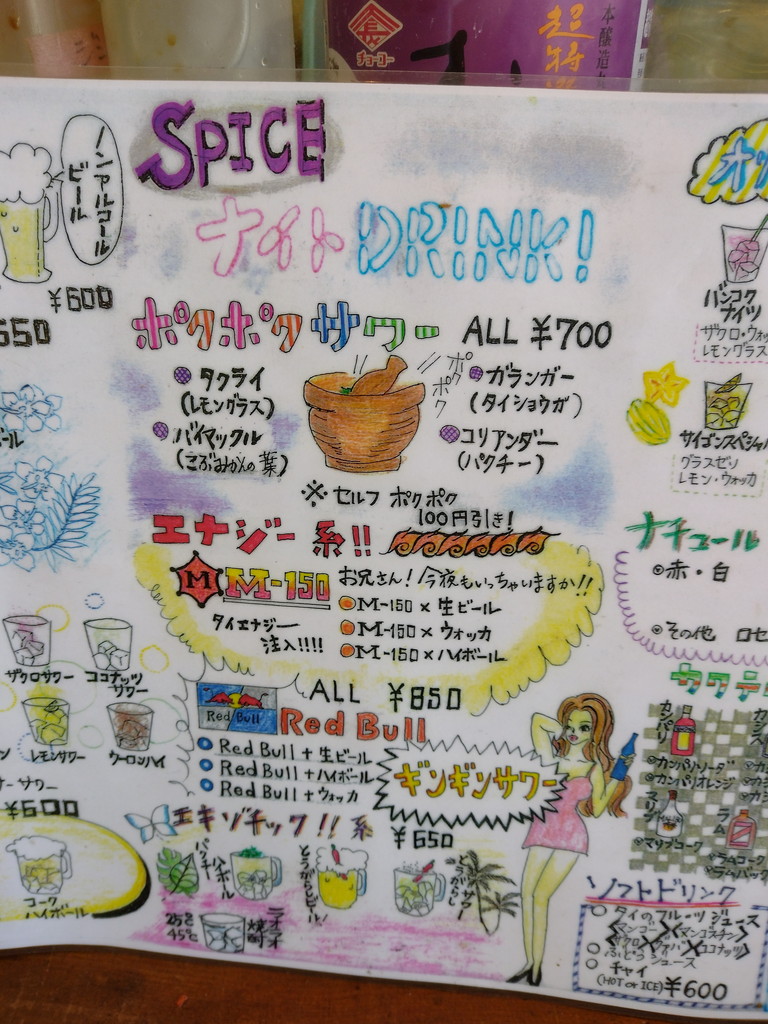 チョーコー
超特選
本醸造
ノンアルコール
ビール
¥600
650
SPICE
ナイト DRINK!
ポクポクサワー ALL ¥700
タクライ
(レモングラス)
バイマックル
(こぶみかんの葉)
ポク
ポク
ガランガー
(タイショウガ)
コリアンダー
(パクチー)
※ セルフ ポクポク
100円引き!
エナジー系!!
M M-150 お兄さん!今夜もいっちゃいますか!!
タイエナジー
注入!!!!
M-150×生ビール
M-150×ウォッカ
M-150×ハイボール
ALL ¥850
Red Bull
Red Bull
Red Bull+生ビール
Red Bull+ハイボール
Red Bull+ウォッカ
ギンギンサワー
エキゾチック!!系
¥650
パクチーハイボール
とうがらしビール!
25度
45℃
焼酎
ザクロサワー
ココナッツ
サワー
レモンサワー
ウーロンハイ
サワー
¥600
コーク
ハイボール
バンコク
ナイツ
ザクロ・ウォ
レモングラス
サイゴンスペシャル
グラスゼリ
レモン・ウォッカ
ナチュール
◎赤・白
◎その他 ロゼ
カクテ
カンパリ
◎カンパリソーダ
◎カンパリオレンジ
マリブ
◎マリブコーク
ラム
◎ラムコーク
◎ラムバック
ソフトドリンク
○ タイのフルーツジュース
<マンゴー><マンゴスチン>
<ザクロ><グァバ><ココナッツ>
○ ぶどうジュース
○ チャイ
(HOT or ICE) ¥600